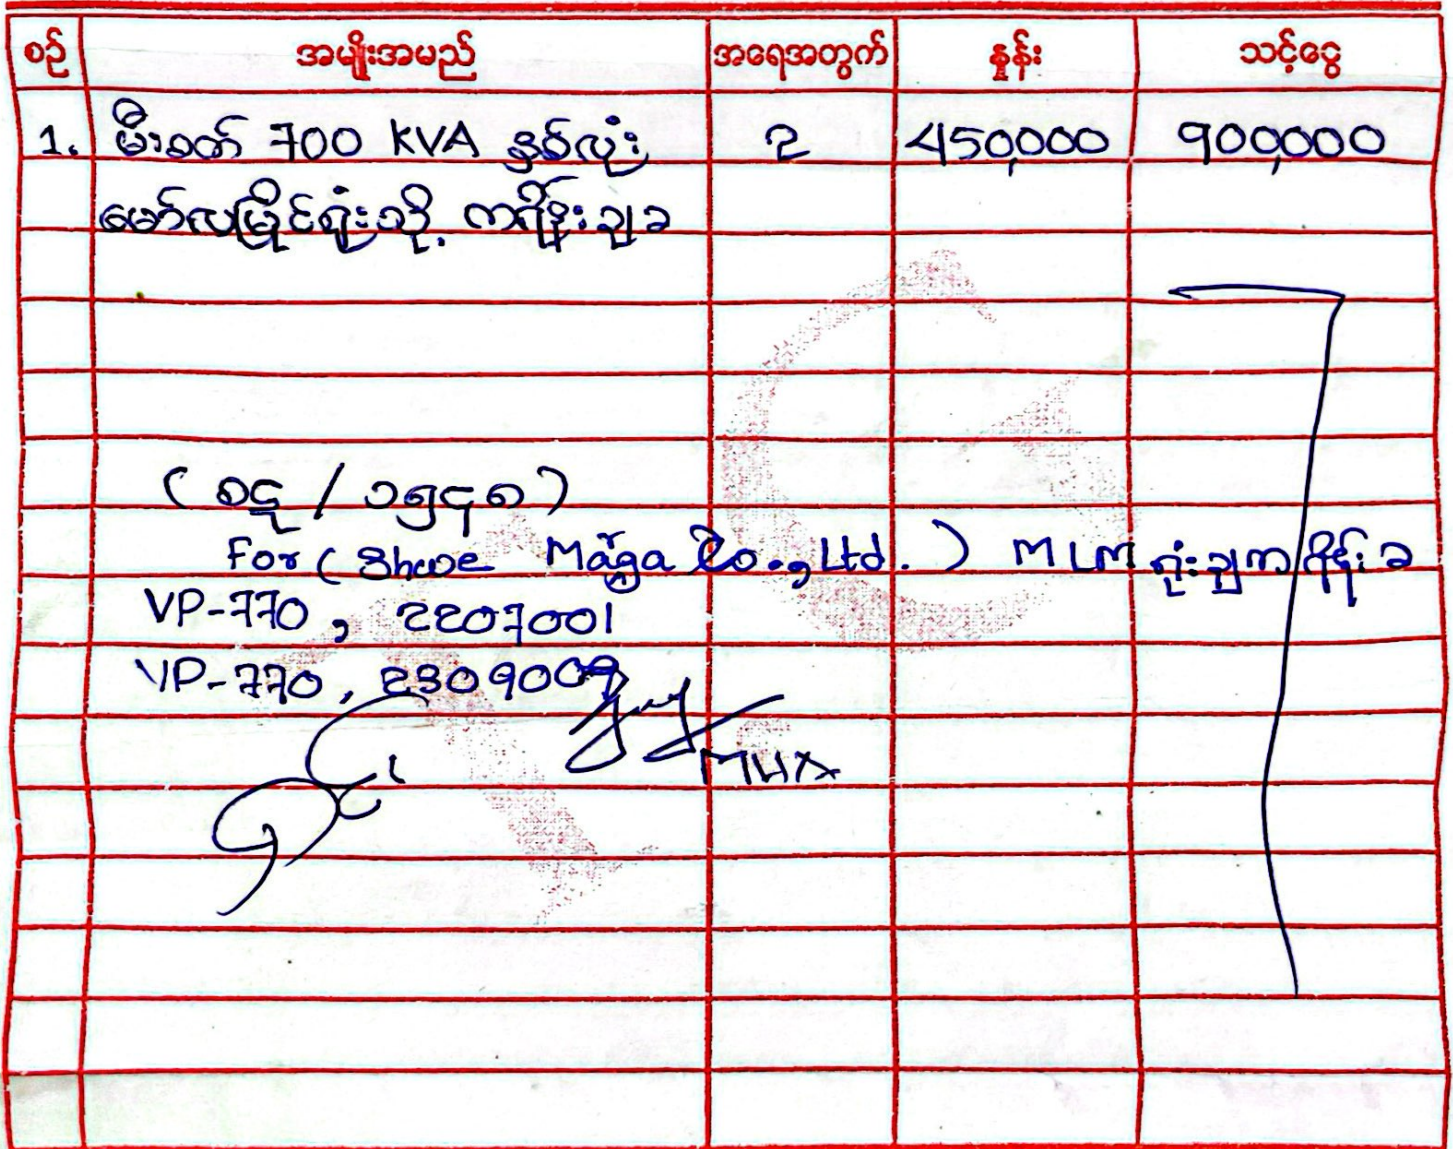 စဉ် အမျိုးအမည် အရေအတွက် နှုန်း သင့်ငွေ
1. မီးစက် 700 KVA နှစ်လုံး 2 450,000 900,000
မော်လမြိုင်ရုံးသို့ ကရိန်းချခ
( စဋ / ၁၅၄၈ )
For ( Shwe Maga Co., Ltd. ) MLM ရုံးချကရိန်းခ
VP-770, 2207001
VP-770, 2309009
MHA